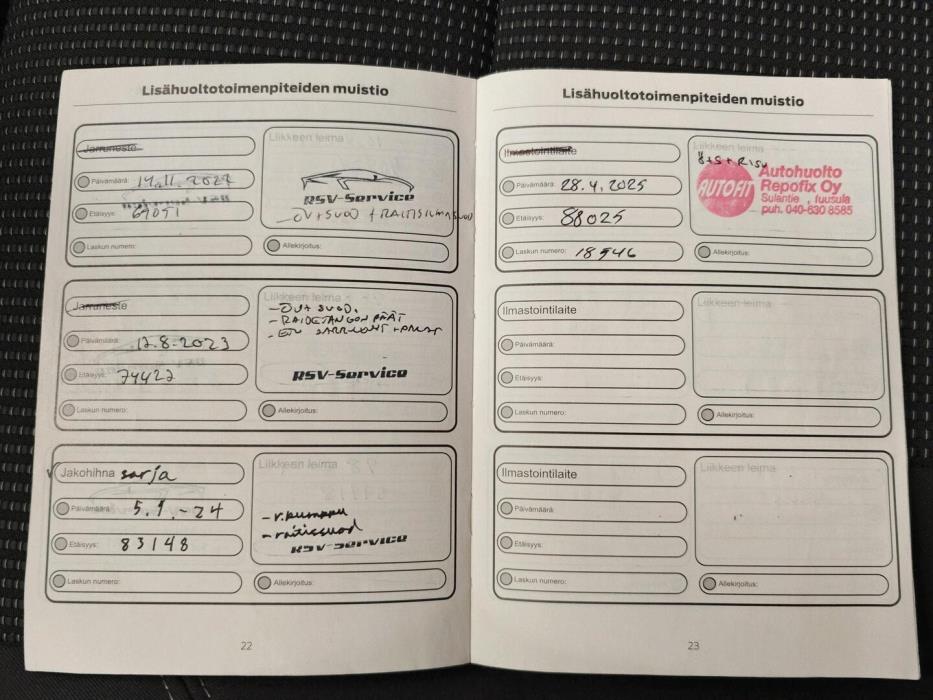 Lisähuoltotoimenpiteiden muistio
Jarruneste
Liikkeen leima
Päivämäärä:
Etäisyys: 69051
RSV-Service
ÖV+SUOD + RAITISILMASUOD
Laskun numero:
Allekirjoitus:
Jarruneste
Liikkeen leima
- ÖV+ SUOD.
- RAIDETANGON PÄÄT
Päivämäärä: 17.8.2023
Etäisyys: 74427
RSV-Service
Laskun numero:
Allekirjoitus:
Jakohihna sarja
Liikkeen leima
Päivämäärä: 5.1.-24
- v.pumppu
- raitissuod
Etäisyys: 83148
RSV-Service
Laskun numero:
Allekirjoitus:
22
Lisähuoltotoimenpiteiden muistio
Ilmastointilaite
Liikkeen leima
Ö+S+RISU
Päivämäärä: 28.4.2025
AUTOFIT
Autohuolto
Repofix Oy
Sulantie , tuusula
puh. 040-630 8585
Etäisyys: 88025
Laskun numero: 18546
Allekirjoitus:
Ilmastointilaite
Liikkeen leima
Päivämäärä:
Etäisyys:
Laskun numero:
Allekirjoitus:
Ilmastointilaite
Liikkeen leima
Päivämäärä:
Etäisyys:
Laskun numero:
Allekirjoitus:
23